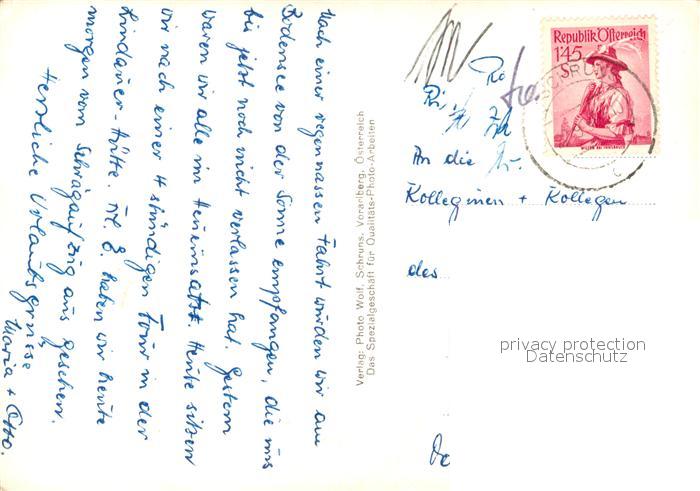 Nach einer regennassen Fahrt wurden wir am
Bodensee von der Sonne empfangen, die uns
bis jetzt noch nicht verlassen hat. Gestern
waren wir alle im Heueinsatz. Heute sitzen
wir nach einer 4 stündigen Tour in der
Lindauer-Hütte. Frl. E. haben wir heute
morgen vom Schrägaufzug aus gesehen.
Herzliche Urlaubsgrüsse
Maria + Otto.
Verlag: Photo Wolf, Schruns, Vorarlberg, Österreich
Das Spezialgeschäft für Qualitäts-Photo-Arbeiten
Republik Österreich
1'45
S
An die
Kolleginen + Kollegen
des
privacy protection
Datenschutz